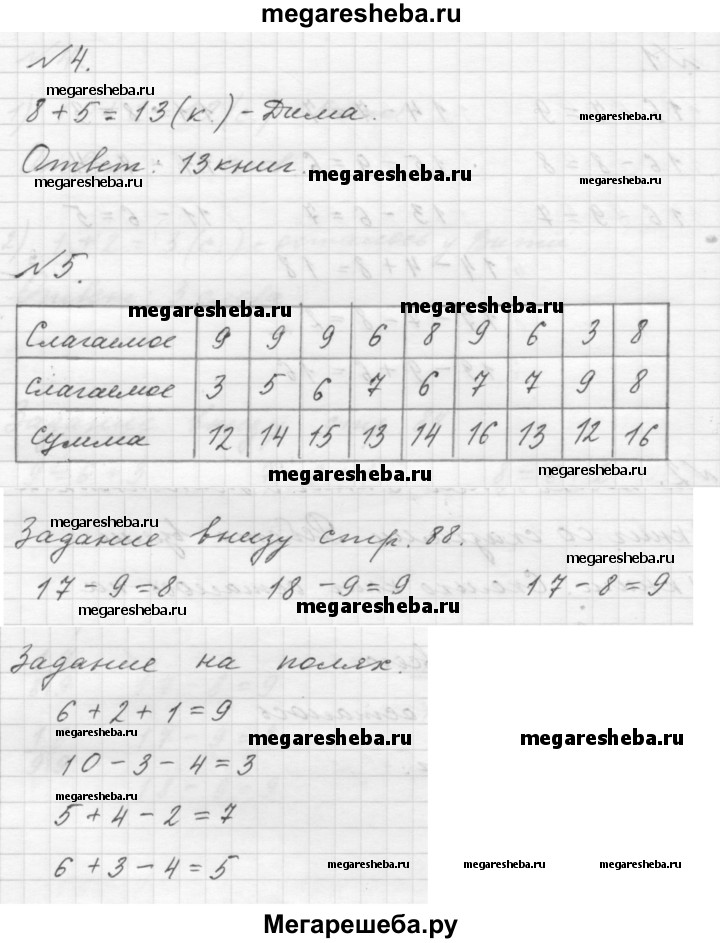 megaresheba.ru
№4.
megaresheba.ru
8+5=13(к.) - Дима.
Ответ: 13 книг.
megaresheba.ru megaresheba.ru
№5.
megaresheba.ru megaresheba.ru
Слагаемое 9 9 9 6 8 9 6 3 8
слагаемое 3 5 6 7 6 7 7 9 8
сумма 12 14 15 13 14 16 13 12 16
megaresheba.ru megaresheba.ru
megaresheba.ru
Задание внизу стр. 88.
megaresheba.ru
17-9=8 18-9=9 17-8=9
megaresheba.ru megaresheba.ru
Задание на полях.
6+2+1=9
megaresheba.ru megaresheba.ru megaresheba.ru
10-3-4=3
megaresheba.ru
5+4-2=7
6+3-4=5
megaresheba.ru megaresheba.ru megaresheba.ru
Мегарешеба.ру